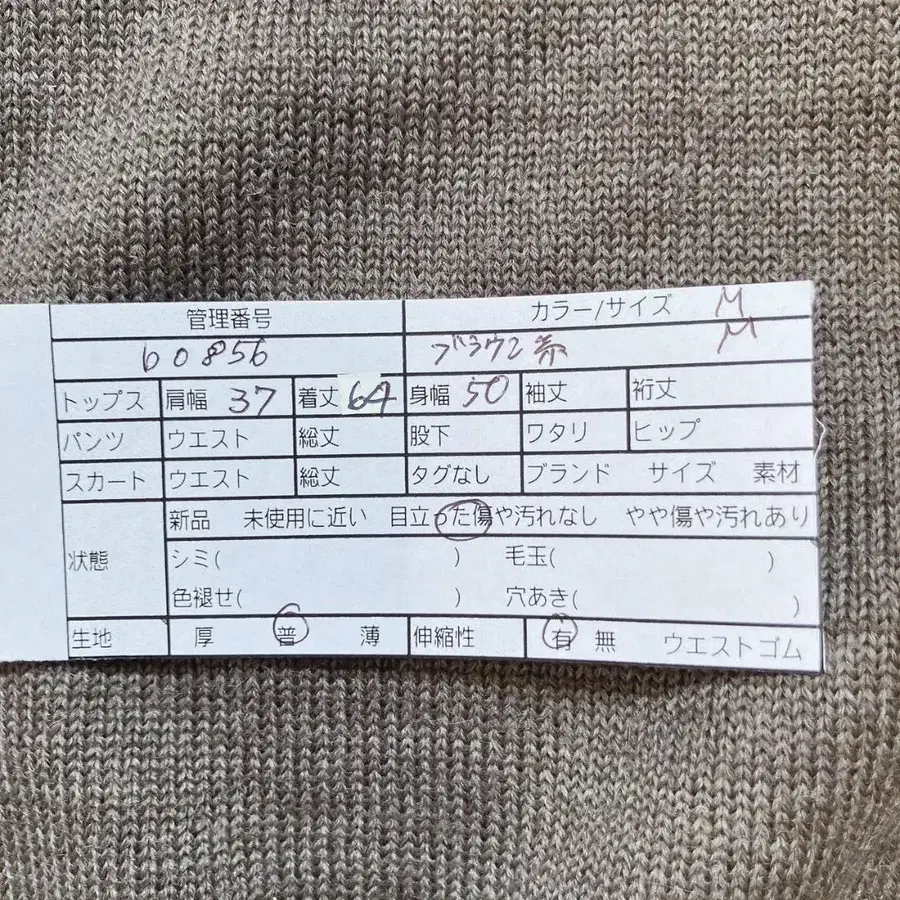 管理番号 カラー/サイズ M
60856 ブラウン系 M
トップス 肩幅 37 着丈 64 身幅 50 袖丈 裄丈
パンツ ウエスト 総丈 股下 ワタリ ヒップ
スカート ウエスト 総丈 タグなし ブランド サイズ 素材
状態 新品 未使用に近い 目立った傷や汚れなし やや傷や汚れあり
シミ( ) 毛玉( )
色褪せ( ) 穴あき( )
生地 厚 普 薄 伸縮性 有 無 ウエストゴム